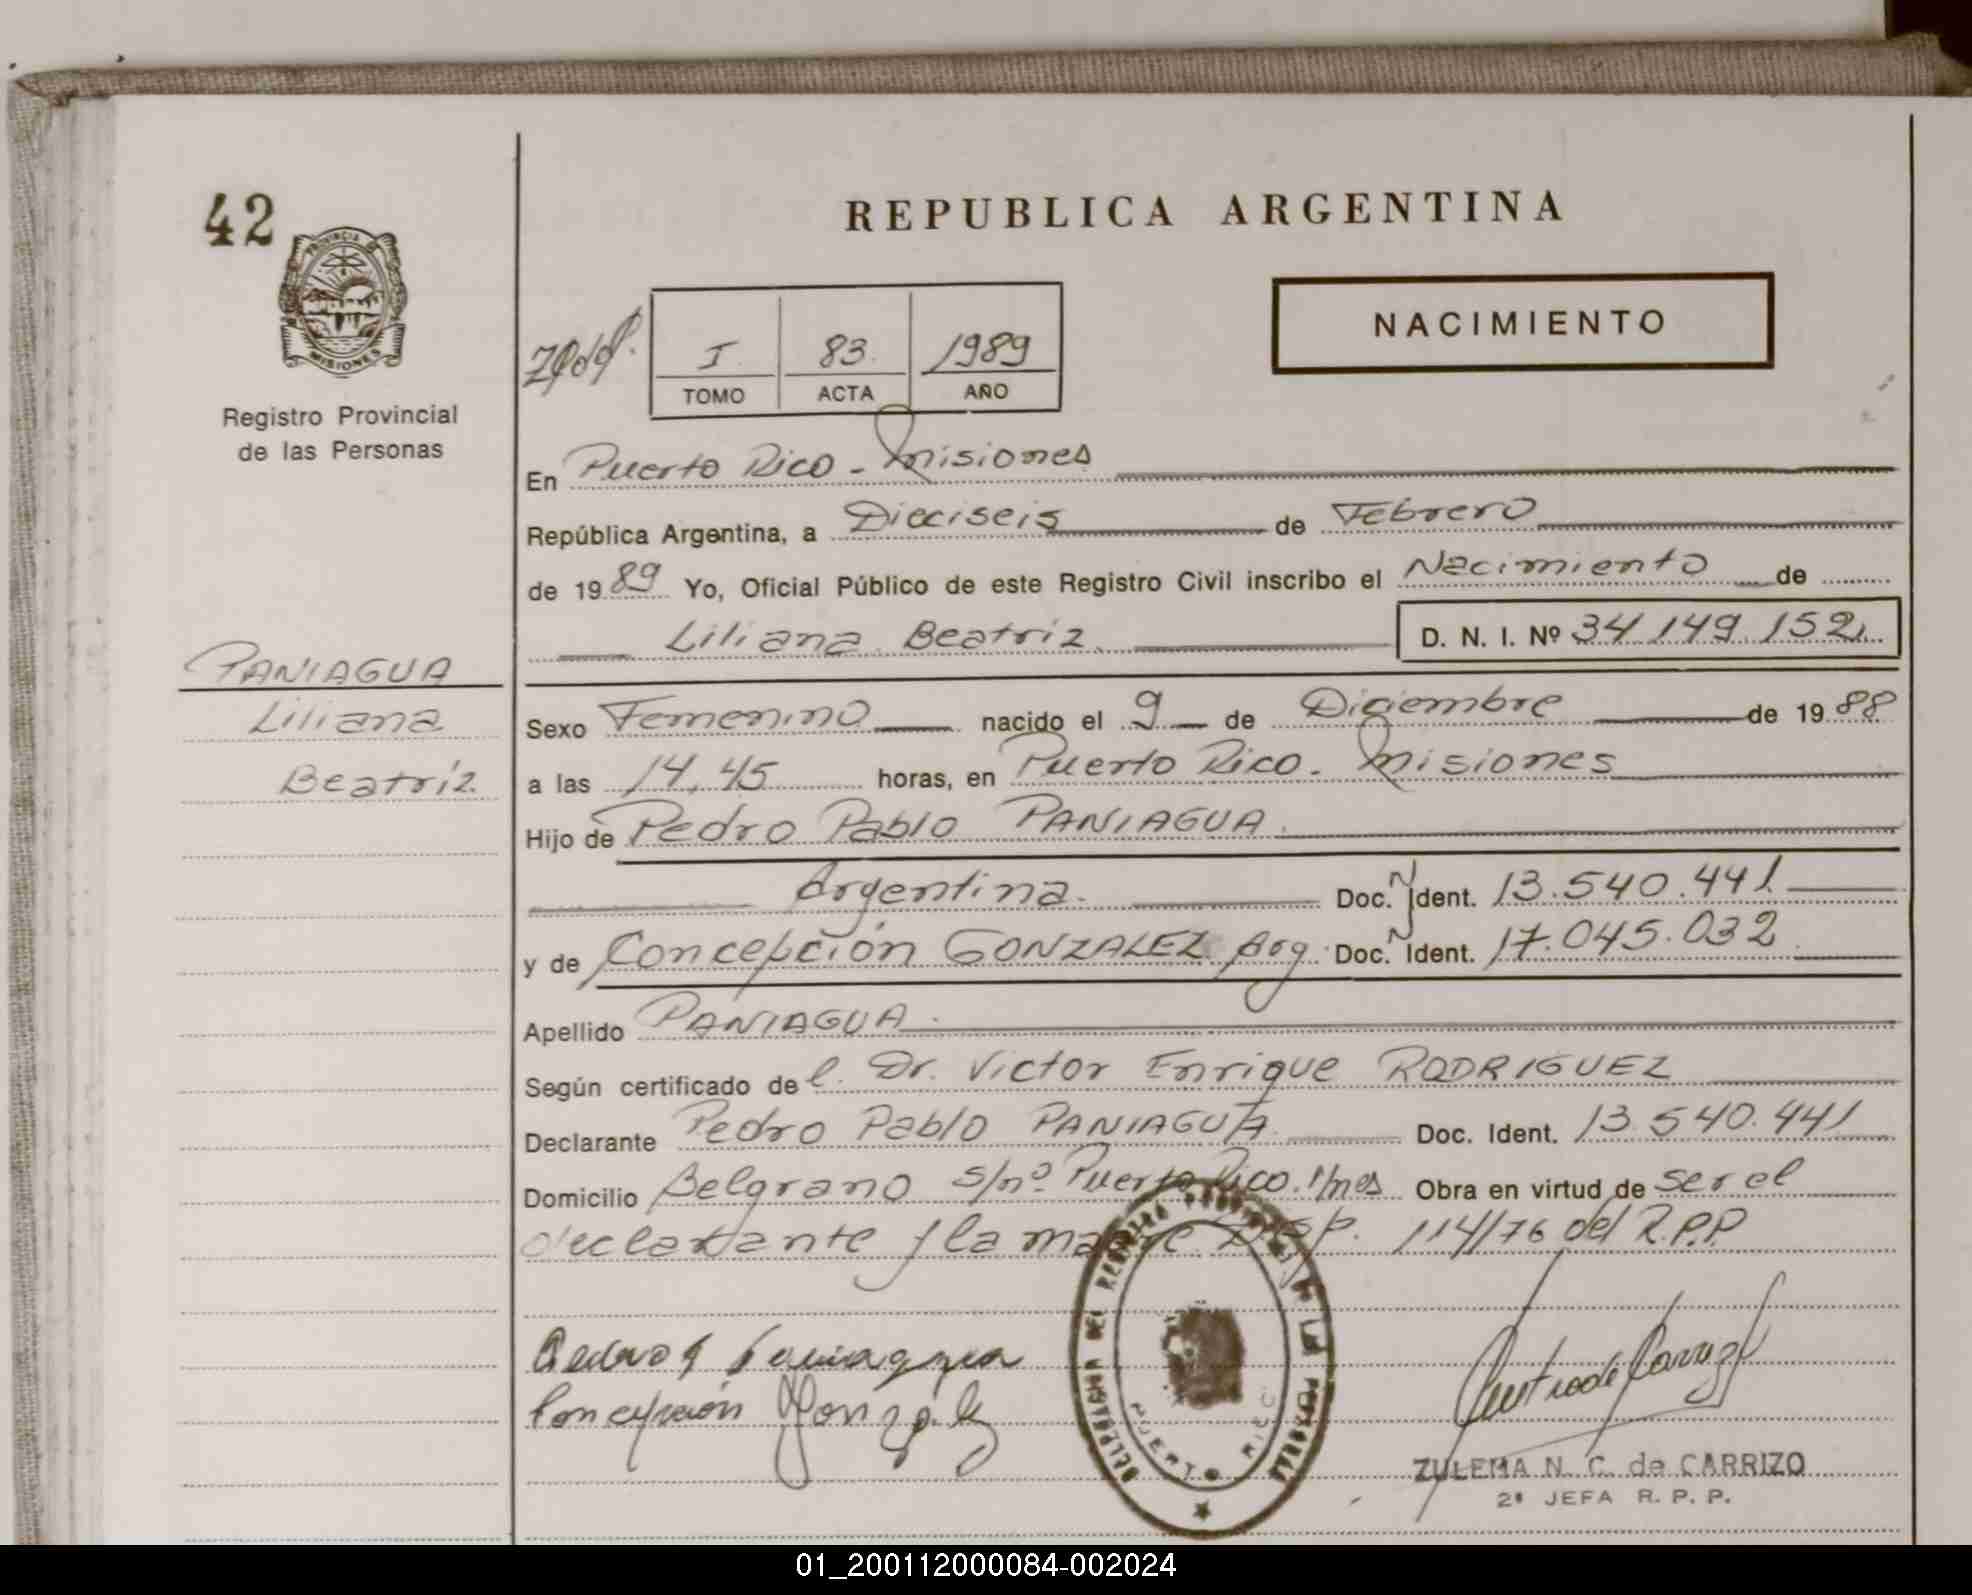 42
PROVINCIA DE
MISIONES
Registro Provincial
de las Personas
REPUBLICA ARGENTINA
NACIMIENTO
I 83 1989
TOMO ACTA AÑO
En Puerto Rico - Misiones
República Argentina, a Dieciseis de Febrero
de 1989 Yo, Oficial Público de este Registro Civil inscribo el Nacimiento de
Liliana Beatríz D. N. I. Nº 34.149.152
PANIAGUA
Liliana
Beatríz
Sexo Femenino nacido el 9 de Diciembre de 1988
a las 14,45 horas, en Puerto Rico - Misiones
Hijo de Pedro Pablo PANIAGUA
Argentina. Doc. N Ident. 13.540.441
y de Concepción GONZALEZ Arg. Doc. N Ident. 17.045.032
Apellido PANIAGUA
Según certificado del Dr. Victor Enrique RODRIGUEZ
Declarante Pedro Pablo PANIAGUA Doc. Ident. 13.540.441
Domicilio Belgrano s/nº Puerto Rico. Mnes Obra en virtud de ser el
declarante y la madre Disp. 114/76 del R.P.P
Pedro P Paniagua
Concepción Gonzalez
DELEGACION DEL REGISTRO PROVINCIAL DE LAS PERSONAS
PUERTO RICO
ZULEMA N. C. de CARRIZO
2ª JEFA R. P. P.
01_200112000084-002024